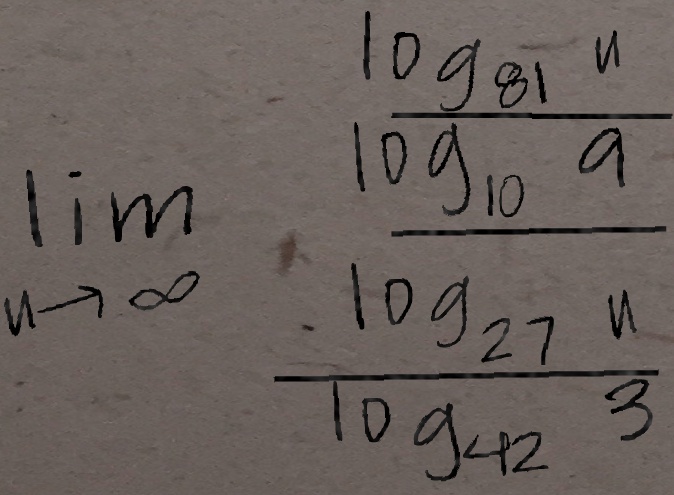 \lim_{n \to \infty} \frac{\frac{\log_{81} n}{\log_{10} 9}}{\frac{\log_{27} n}{\log_{42} 3}}